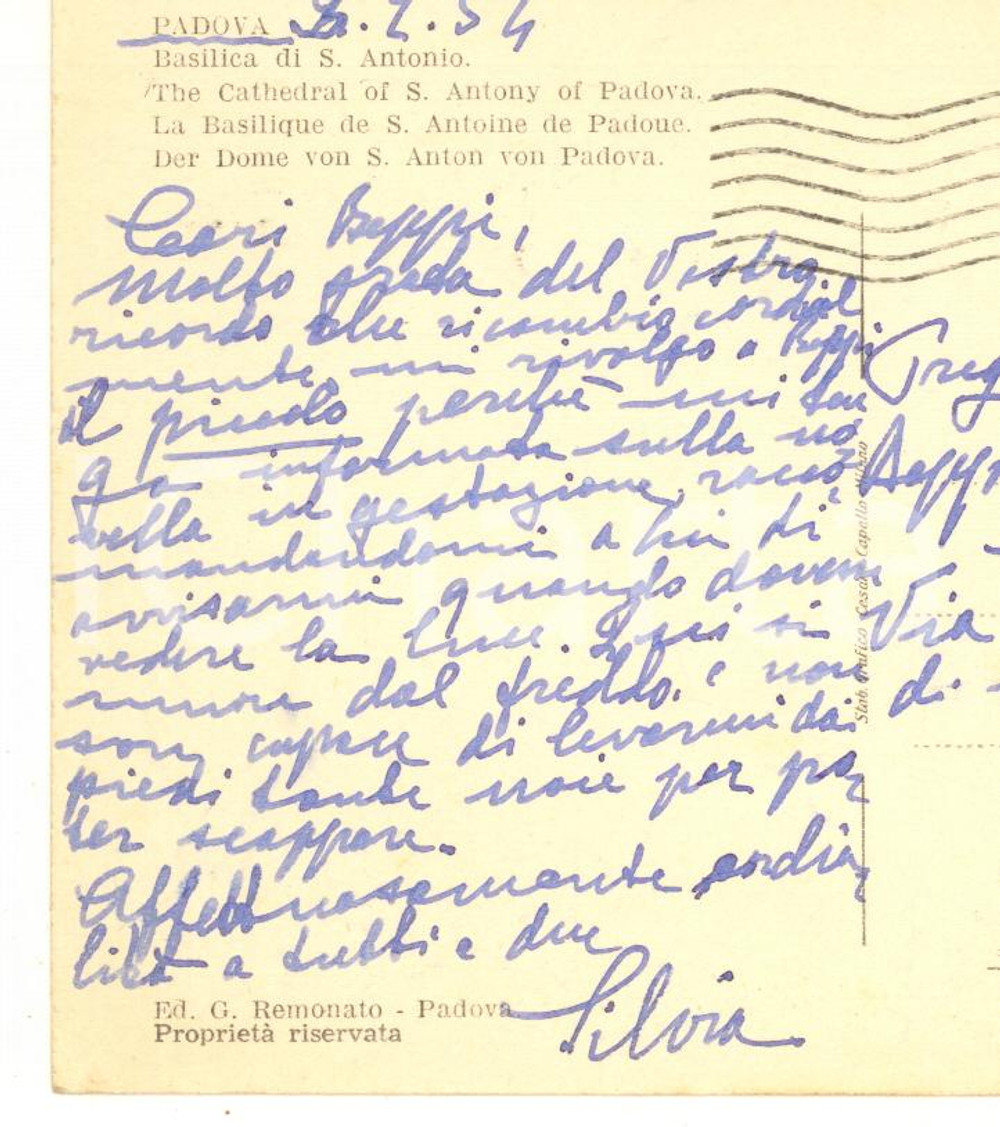 PADOVA 2.2.54
Basilica di S. Antonio.
The Cathedral of S. Antony of Padova.
La Basilique de S. Antoine de Padoue.
Der Dome von S. Anton von Padova.
Cari Beppi,
molto grata del Vostro
ricordo che ricambio cordial
mente mi rivolgo a Beppi
il piccolo perchè mi ten
ga informata sulla no
vella in gestazione,
mandandomi a
avvisarmi quando dovrà
vedere la luce. Qui si
muore dal freddo e non
son capace di levarmi dai
piedi tante noie per po
ter scappare.
Affettuosamente cordia
lità a tutti e due
Silvia
Ed. G. Remonato - Padova
Proprietà riservata
Stab. Grafico Cesare Capello Milano
Preg
Beppi
Via
di